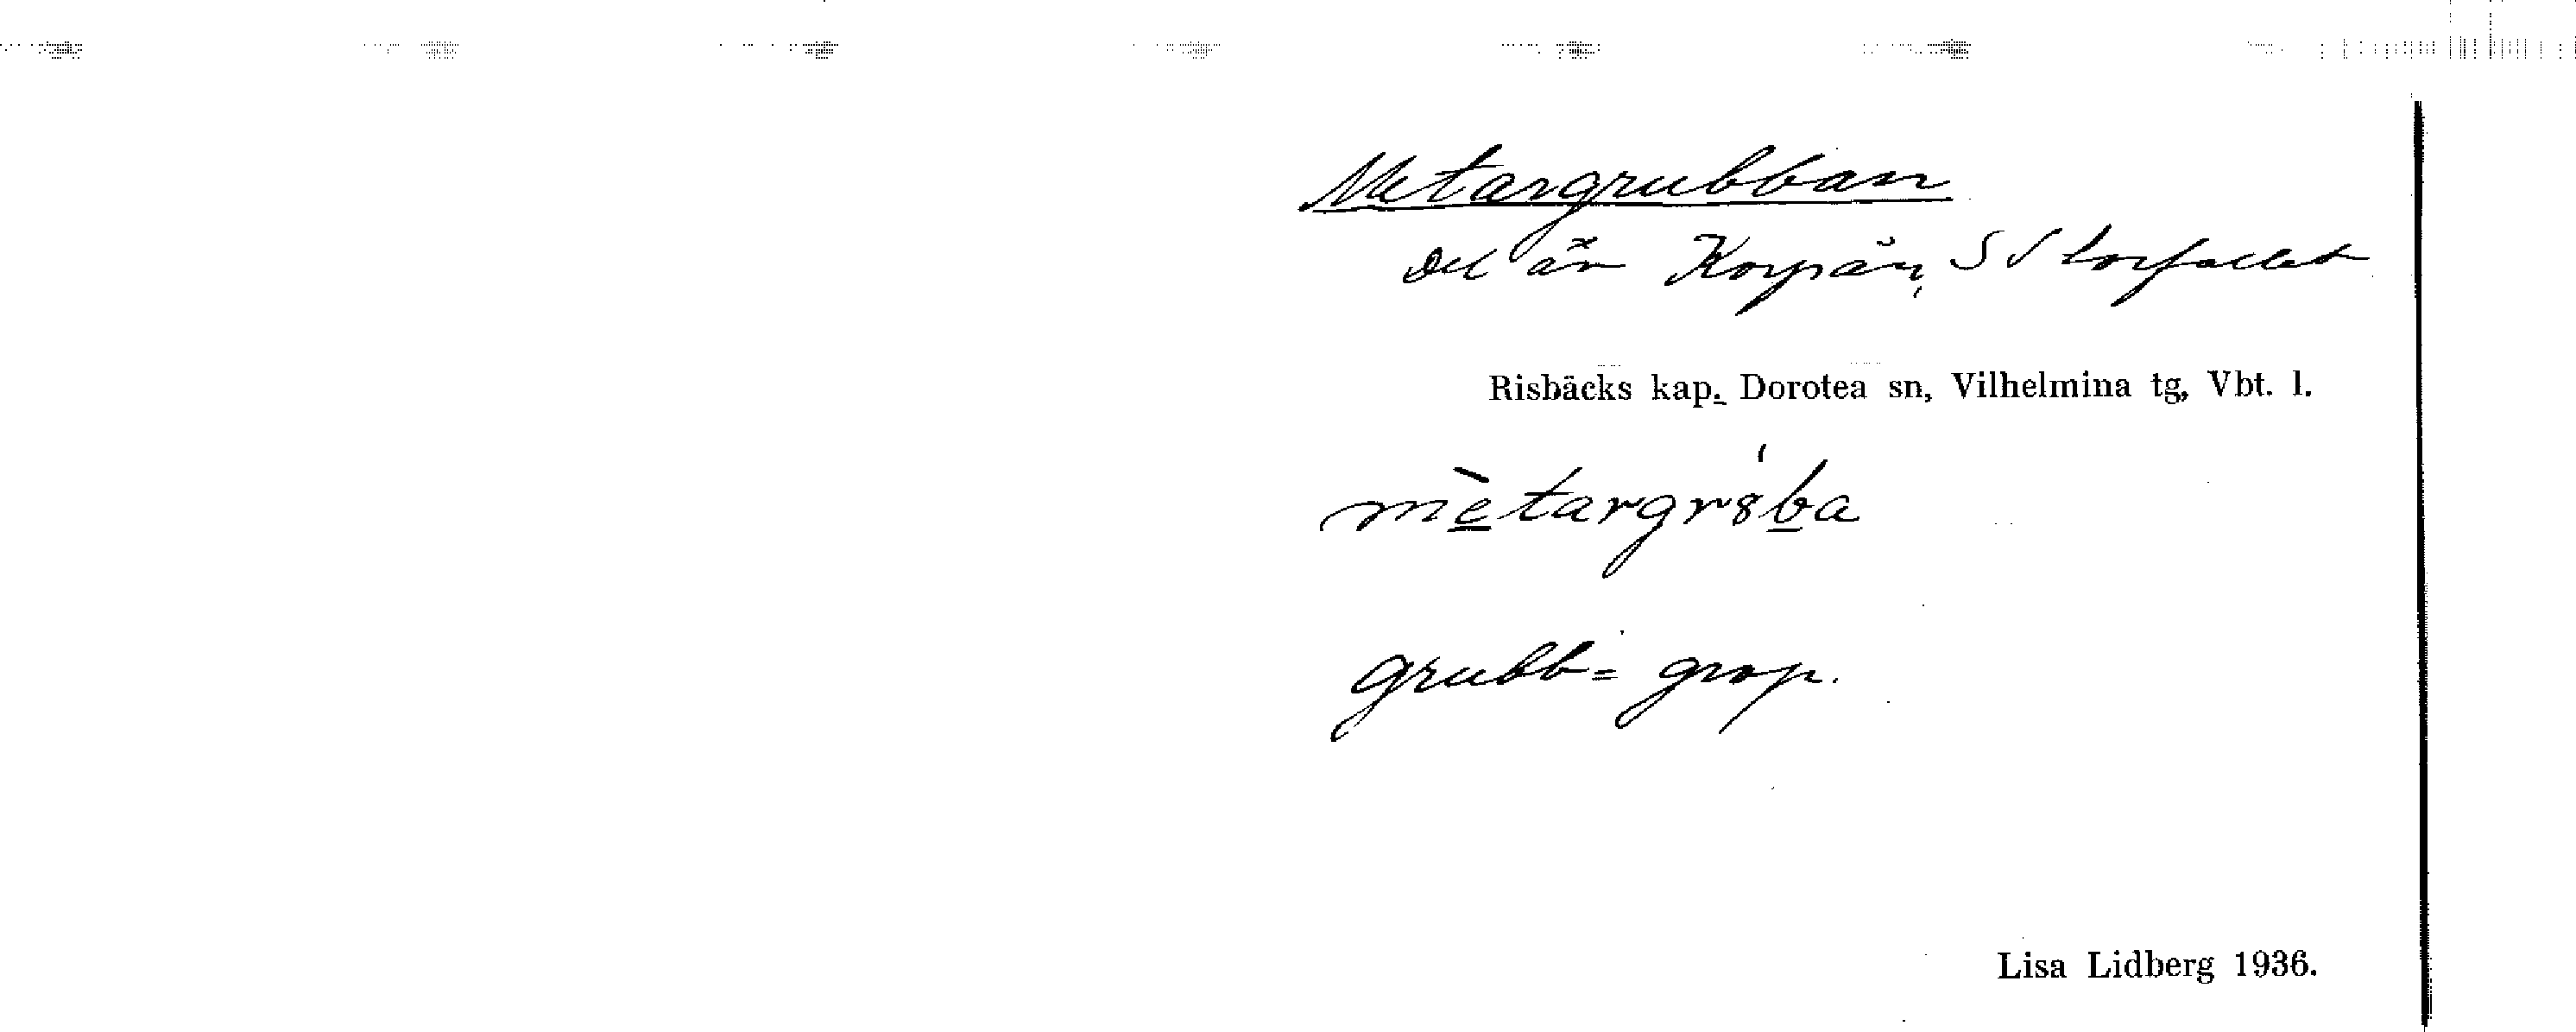 Metargrubban
Del än Korpån, S Storfallet
Risbäcks kap. Dorotea sn, Vilhelmina tg, Vbt. l.
mètargr8ba
grubb = grop.
Lisa Lidberg 1936.